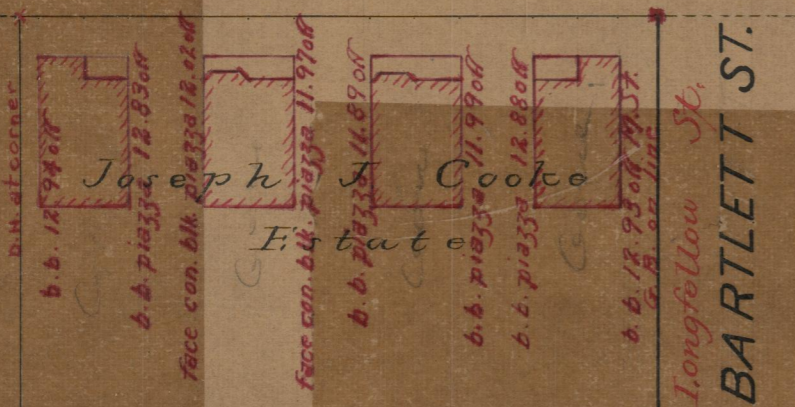 D.H. at corner
b.b. 12.94 off
b.b. piazza 12.83 off
face con. blk. piazza 12.02 off
face con. blk. piazza 11.97 off
b.b. piazza 11.89 off
b.b. piazza 11.99 off
b.b. piazza 12.88 off
b.b. 12.93 off
G.B. on line
Joseph J Cooke
Estate
Longfellow St.
BARTLETT ST.